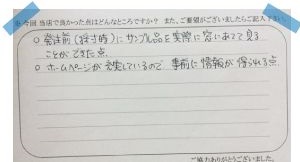 ※ 今回 当店で良かった点はどんなところですか? また、ご要望がございましたらご記入下さい。
○ 発注前(採寸時)にサンプル品を実際に窓にあてて見る
ことができた点
○ ホームページが充実しているので、事前に情報が得られる点
ご協力ありがとうございました。